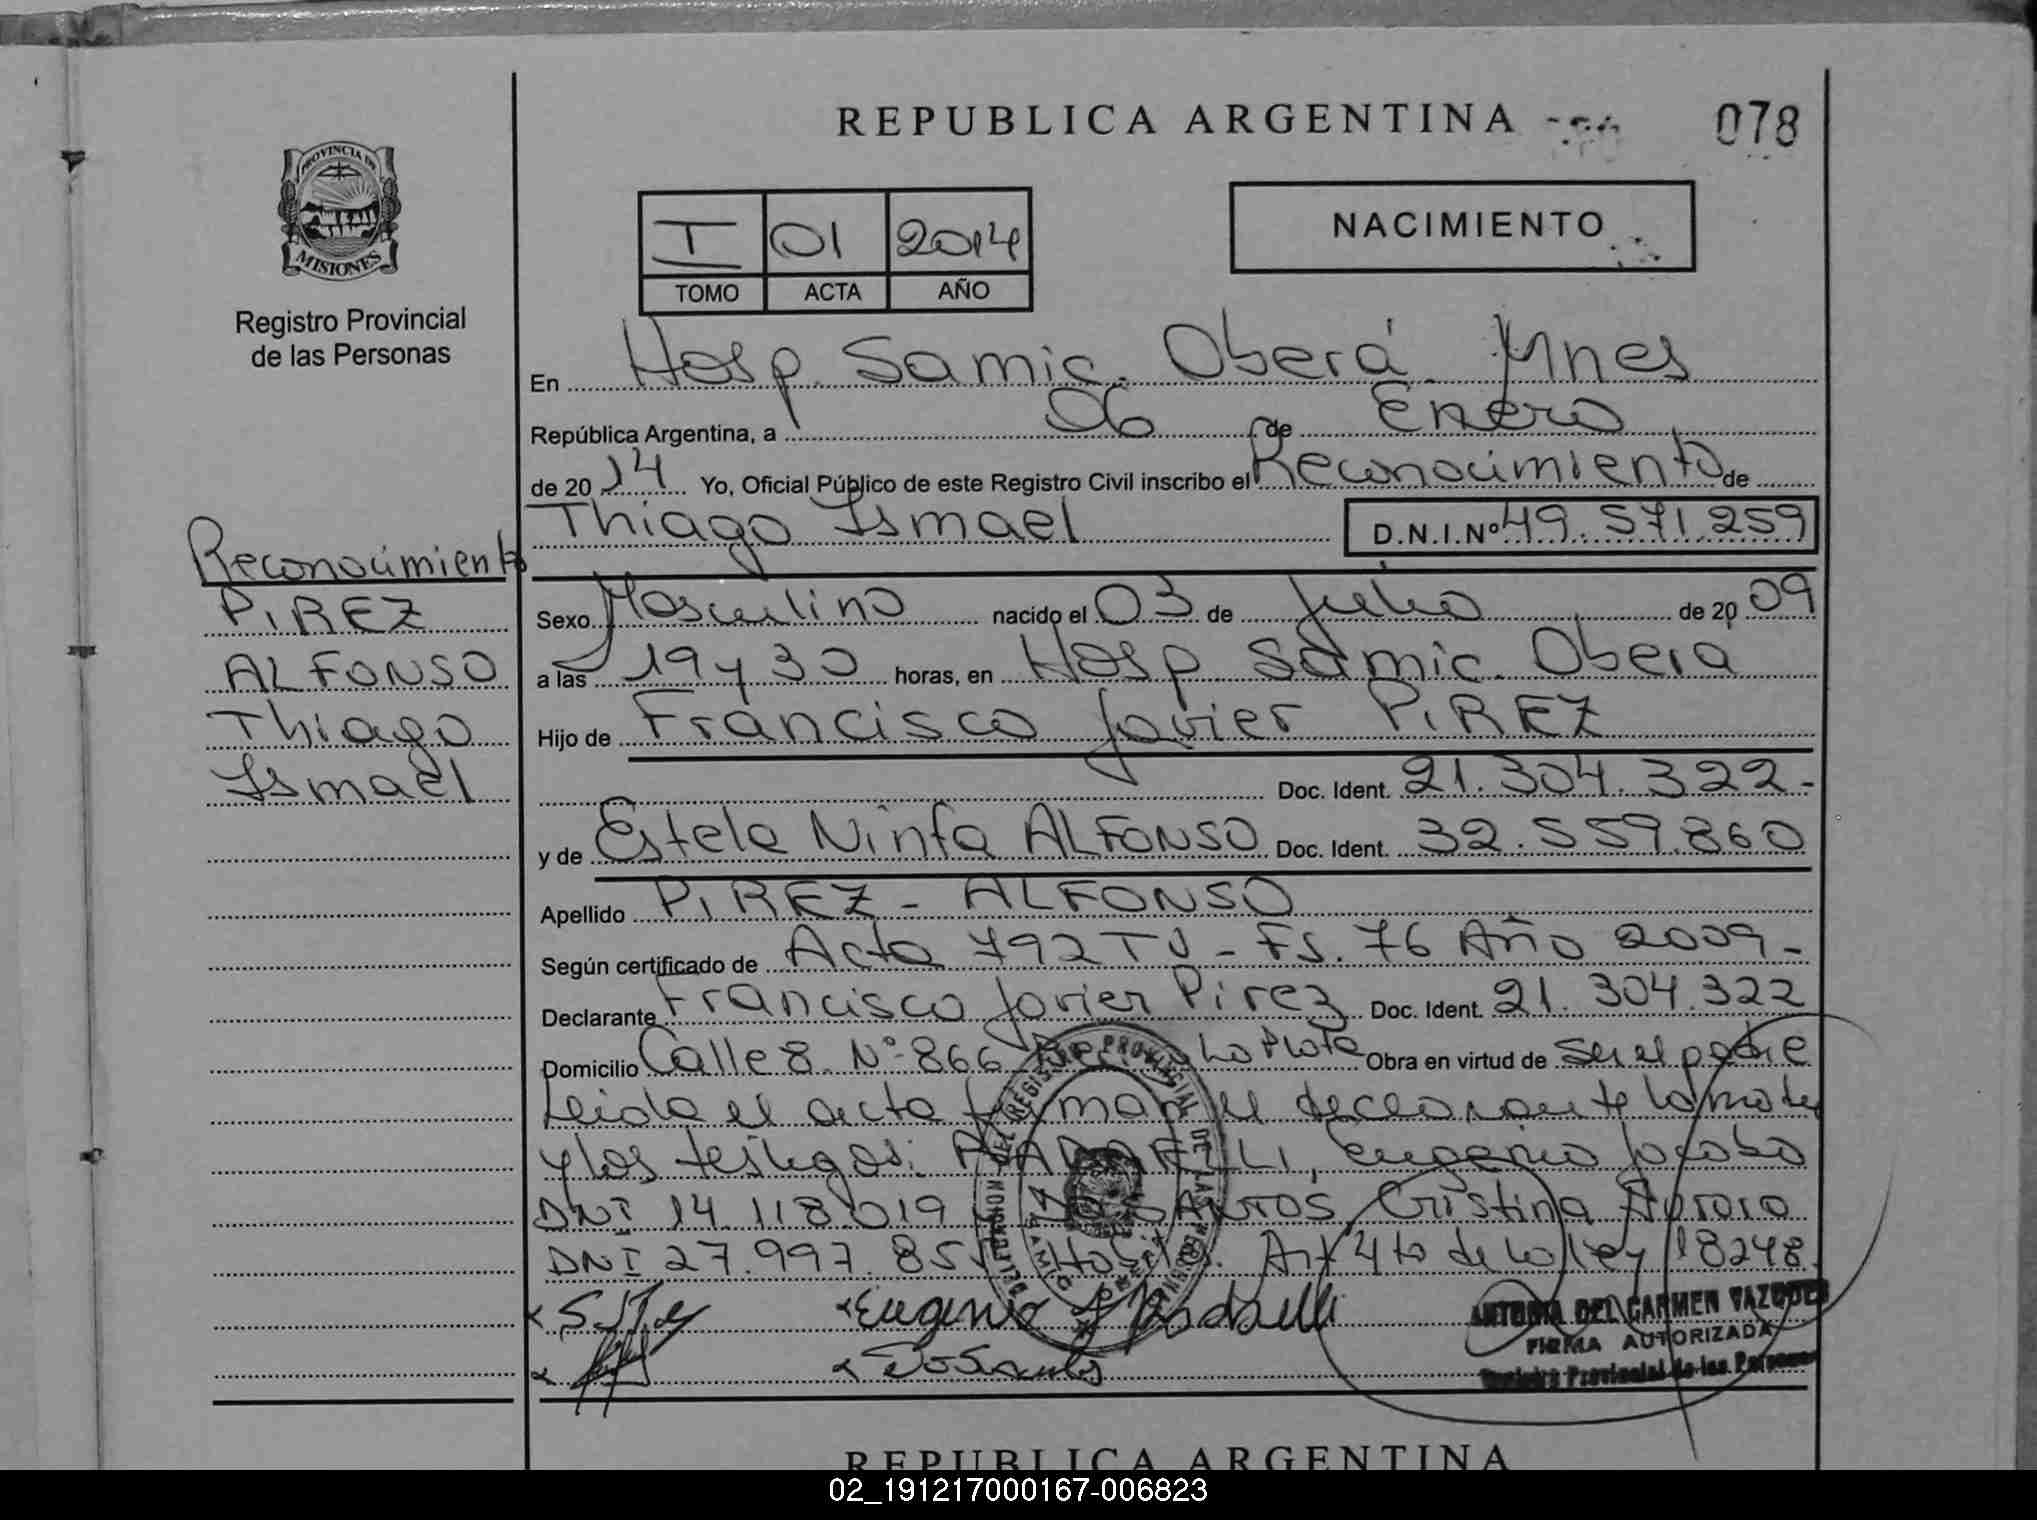 REPUBLICA ARGENTINA
078
PROVINCIA DE
MISIONES
Registro Provincial
de las Personas
I 01 2014
TOMO ACTA AÑO
NACIMIENTO
En Hosp. Samic. Oberá Mnes
República Argentina, a 06 de Enero
de 20 14 Yo, Oficial Público de este Registro Civil inscribo el Reconocimiento de
Thiago Ismael D.N.I.Nº 49.571.259
Reconocimiento
PIREZ
ALFONSO
Thiago
Ismael
Sexo Masculino nacido el 03 de Julio de 20 09
a las 19 y 30 horas, en Hosp Samic. Oberá
Hijo de Francisco Javier PIREZ
Doc. Ident. 21.304.322-
y de Estela Ninfa ALFONSO Doc. Ident. 32.559.860
Apellido PIREZ - ALFONSO
Según certificado de Acta 792 TV - Fs. 76 Año 2009-
Declarante Francisco Javier Pirez Doc. Ident. 21.304.322
Domicilio Calle 8 Nº 866 La Plata Obra en virtud de Ser el padre
Leida el acta firman el declarante la madre
y los testigos: Eugenio Jacobo
DNI 14.118.019 Cristina Aurora
DNI 27.997.85 Art 46 de la ley 18248.
Eugenio
ANTONIA DEL CARMEN VAZQUEZ
FIRMA AUTORIZADA
Registro Provincial de las Personas
REPUBLICA ARGENTINA
02_191217000167-006823